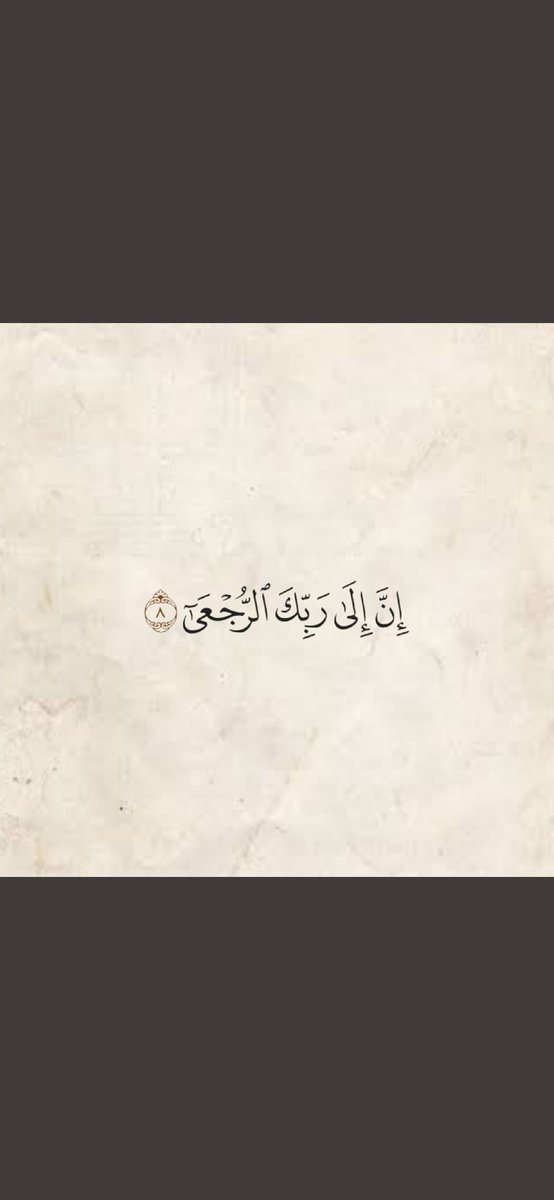 إِنَّ إِلَىٰ رَبِّكَ ٱلرُّجۡعَىٰٓ ٨